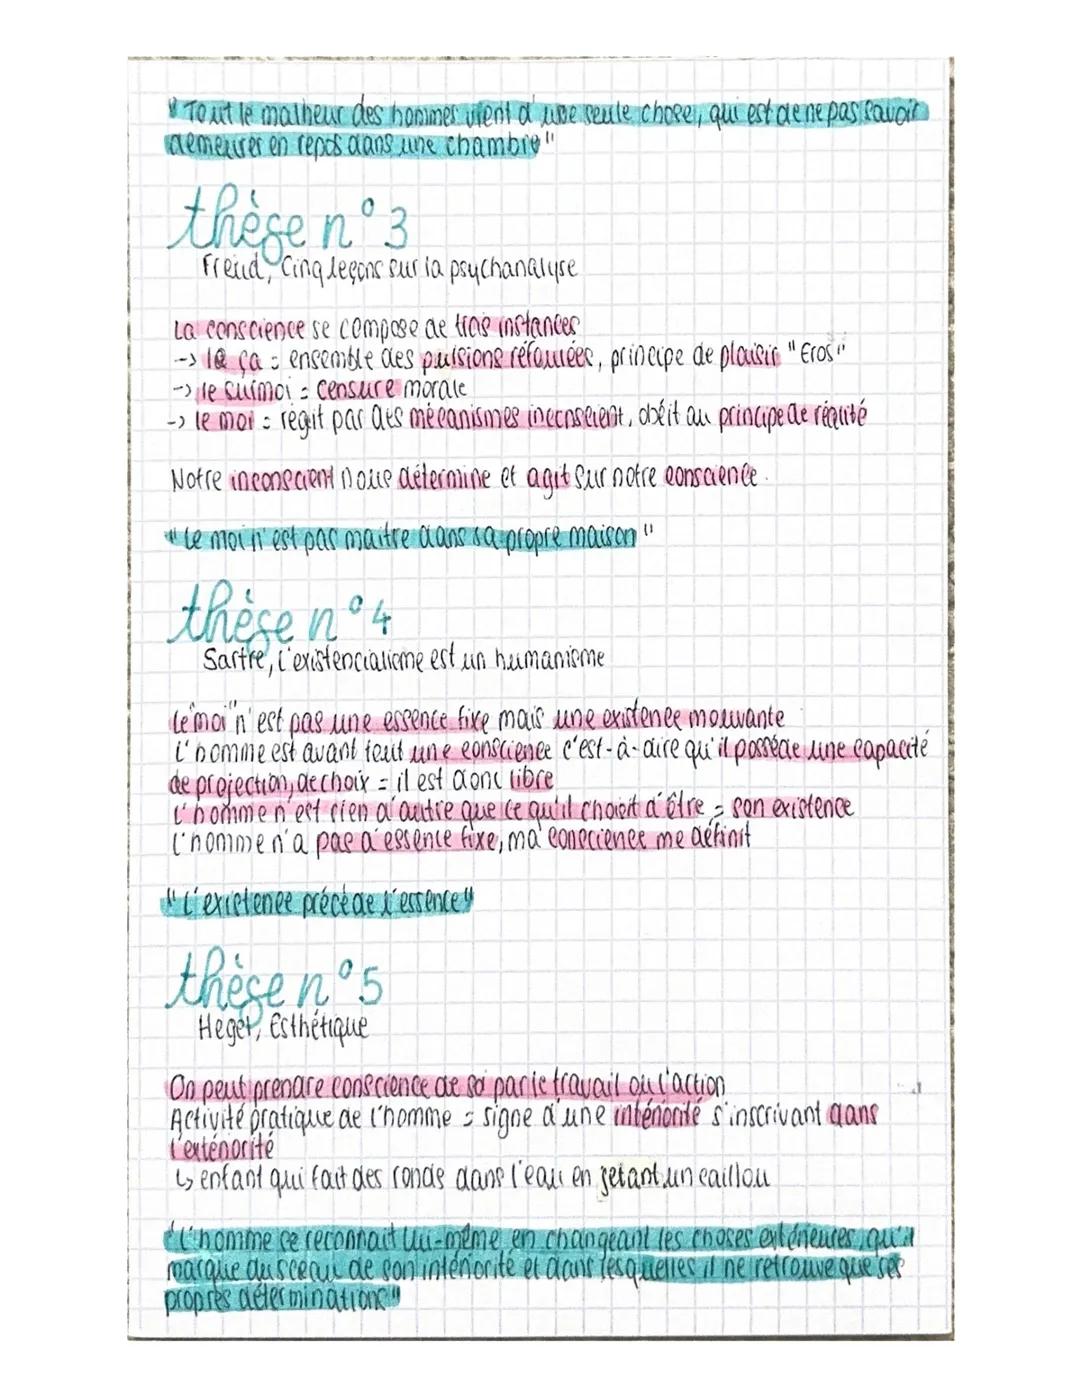 "Tout le malheur des hommes vient d'une seule chose, qui est de ne pas savoir
demeurer en repos dans une chambre"
thèse n°3
Freud, Cinq leçons sur la psychanalyse
La conscience se compose de trois instances
-> le ça = ensemble des pulsions refoulées, principe de plaisir "Eros"
-> le surmoi = censure morale
-> le moi = régit par des mécanismes inconscient, obéit au principe de réalité
Notre inconscient nous détermine et agit sur notre conscience.
"Le moi n'est pas maitre dans sa propre maison"
thèse n°4
Sartre, l'existencialisme est un humanisme
Le "moi" n'est pas une essence fixe mais une existence mouvante
L'homme est avant tout une conscience c'est-à-dire qu'il possède une capacité
de projection, de choix = il est donc libre
L'homme n'est rien d'autre que ce qu'il choisit d'être = son existence
L'homme n'a pas d'essence fixe, ma conscience me définit
"L'existence précède l'essence"
thèse n°5
Hegel, Esthétique
On peut prendre conscience de soi par le travail ou l'action
Activité pratique de l'homme = signe d'une intériorité s'inscrivant dans
l'extériorité
↳ enfant qui fait des ronds dans l'eau en jetant un caillou
"L'homme se reconnait lui-même en changeant les choses extérieures qu'il
marque du sceau de son intériorité et dans lesquelles il ne retrouve que ses
propres déterminations"